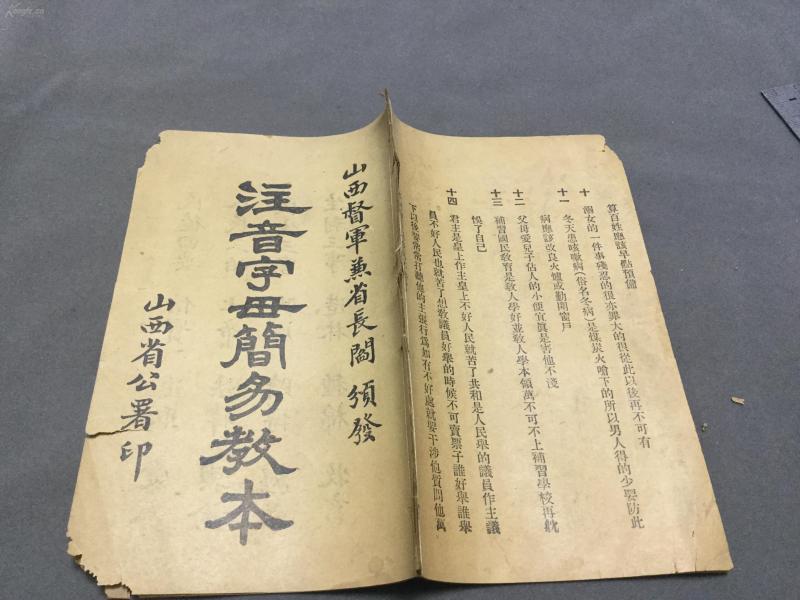 算百姓應該早點預備
十　溺女的一件事殘忍的很亦罪大的很從此以後再不可有
十一　冬天患咳嗽病(俗名冬病)是煤炭火嗆下的所以男人得的少要防此
病應該改良火爐或勤開窗戶
十二　父母愛兒子佔人的小便宜眞是害他不淺
十三　補習國民敎育是敎人學好並敎人學本領萬不可不上補習學校再躭
悞了自己
十四　君主是皇上作主皇上不好人民就苦了共和是人民舉的議員作主議
員不好人民也就苦了想敎議員好舉的時候不可賣票子誰好舉誰舉
下以後要常常打聽他的主張行爲如有不好處就要干涉他質問他萬
山西督軍兼省長閻　頒發
注音字母簡易教本
山西省公署印